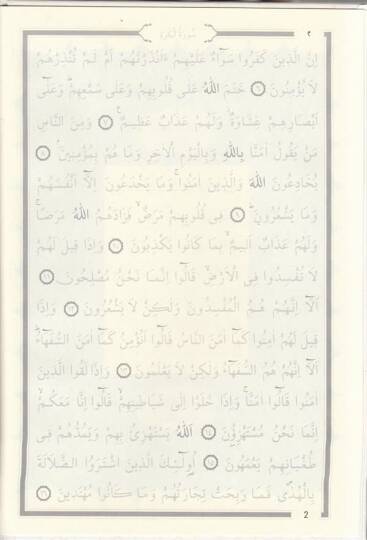 ٢ سورة البقرة
إِنَّ الَّذِينَ كَفَرُوا سَوَاءٌ عَلَيْهِمْ ءَاَنْذَرْتَهُمْ اَمْ لَمْ تُنْذِرْهُمْ
لَا يُؤْمِنُونَ ﴿٦﴾ خَتَمَ اللّٰهُ عَلٰى قُلُوبِهِمْ وَعَلٰى سَمْعِهِمْ وَعَلٰٓى
اَبْصَارِهِمْ غِشَاوَةٌ وَلَهُمْ عَذَابٌ عَظِيمٌ ﴿٧﴾ وَمِنَ النَّاسِ
مَنْ يَقُولُ اٰمَنَّا بِاللّٰهِ وَبِالْيَوْمِ الْاٰخِرِ وَمَا هُمْ بِمُؤْمِنِينَ ﴿٨﴾
يُخَادِعُونَ اللّٰهَ وَالَّذِينَ اٰمَنُوا وَمَا يَخْدَعُونَ اِلَّٓا اَنْفُسَهُمْ
وَمَا يَشْعُرُونَ ﴿٩﴾ فِى قُلُوبِهِمْ مَرَضٌ فَزَادَهُمُ اللّٰهُ مَرَضًا
وَلَهُمْ عَذَابٌ اَلِيمٌ بِمَا كَانُوا يَكْذِبُونَ ﴿١٠﴾ وَاِذَا قِيلَ لَهُمْ
لَا تُفْسِدُوا فِى الْاَرْضِ قَالُٓوا اِنَّمَا نَحْنُ مُصْلِحُونَ ﴿١١﴾
اَلَٓا اِنَّهُمْ هُمُ الْمُفْسِدُونَ وَلٰكِنْ لَا يَشْعُرُونَ ﴿١٢﴾ وَاِذَا
قِيلَ لَهُمْ اٰمِنُوا كَمَٓا اٰمَنَ النَّاسُ قَالُٓوا اَنُؤْمِنُ كَمَٓا اٰمَنَ السُّفَهَٓاءُ
اَلَٓا اِنَّهُمْ هُمُ السُّفَهَٓاءُ وَلٰكِنْ لَا يَعْلَمُونَ ﴿١٣﴾ وَاِذَا لَقُوا الَّذِينَ
اٰمَنُوا قَالُٓوا اٰمَنَّا وَاِذَا خَلَوْا اِلٰى شَيَاطِينِهِمْ قَالُٓوا اِنَّا مَعَكُمْ
اِنَّمَا نَحْنُ مُسْتَهْزِؤُنَ ﴿١٤﴾ اَللّٰهُ يَسْتَهْزِئُ بِهِمْ وَيَمُدُّهُمْ فِى
طُغْيَانِهِمْ يَعْمَهُونَ ﴿١٥﴾ اُولٰٓئِكَ الَّذِينَ اشْتَرَوُا الضَّلَالَةَ
بِالْهُدٰى فَمَا رَبِحَتْ تِجَارَتُهُمْ وَمَا كَانُوا مُهْتَدِينَ ﴿١٦﴾
2